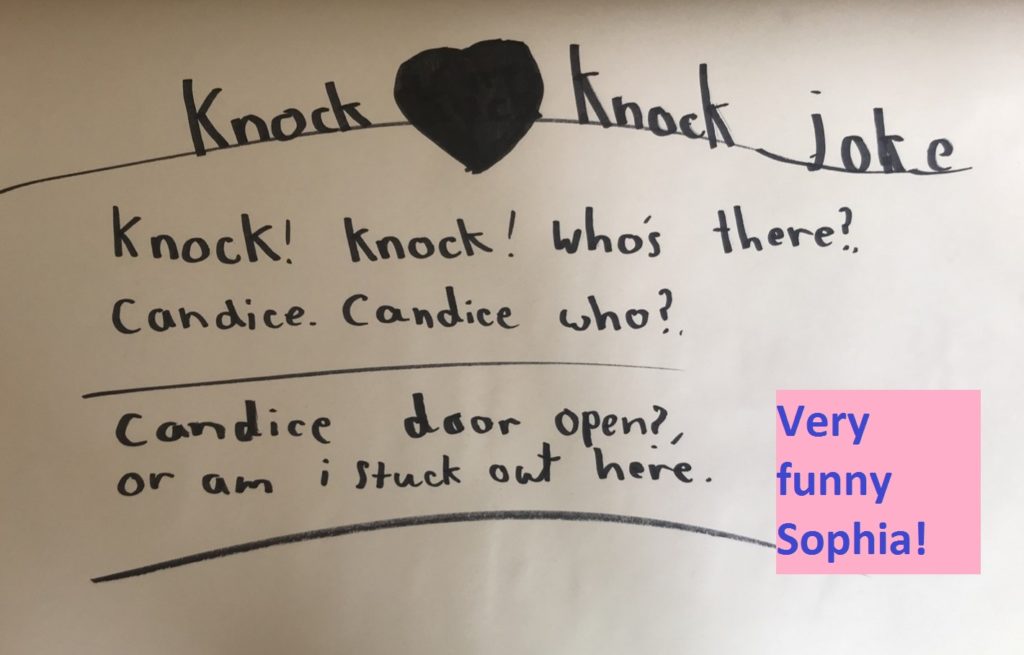 Knock Knock joke
Knock! Knock! Who's there?
Candice. Candice who?
Candice door open?,
or am i stuck out here.
Very
funny
Sophia!